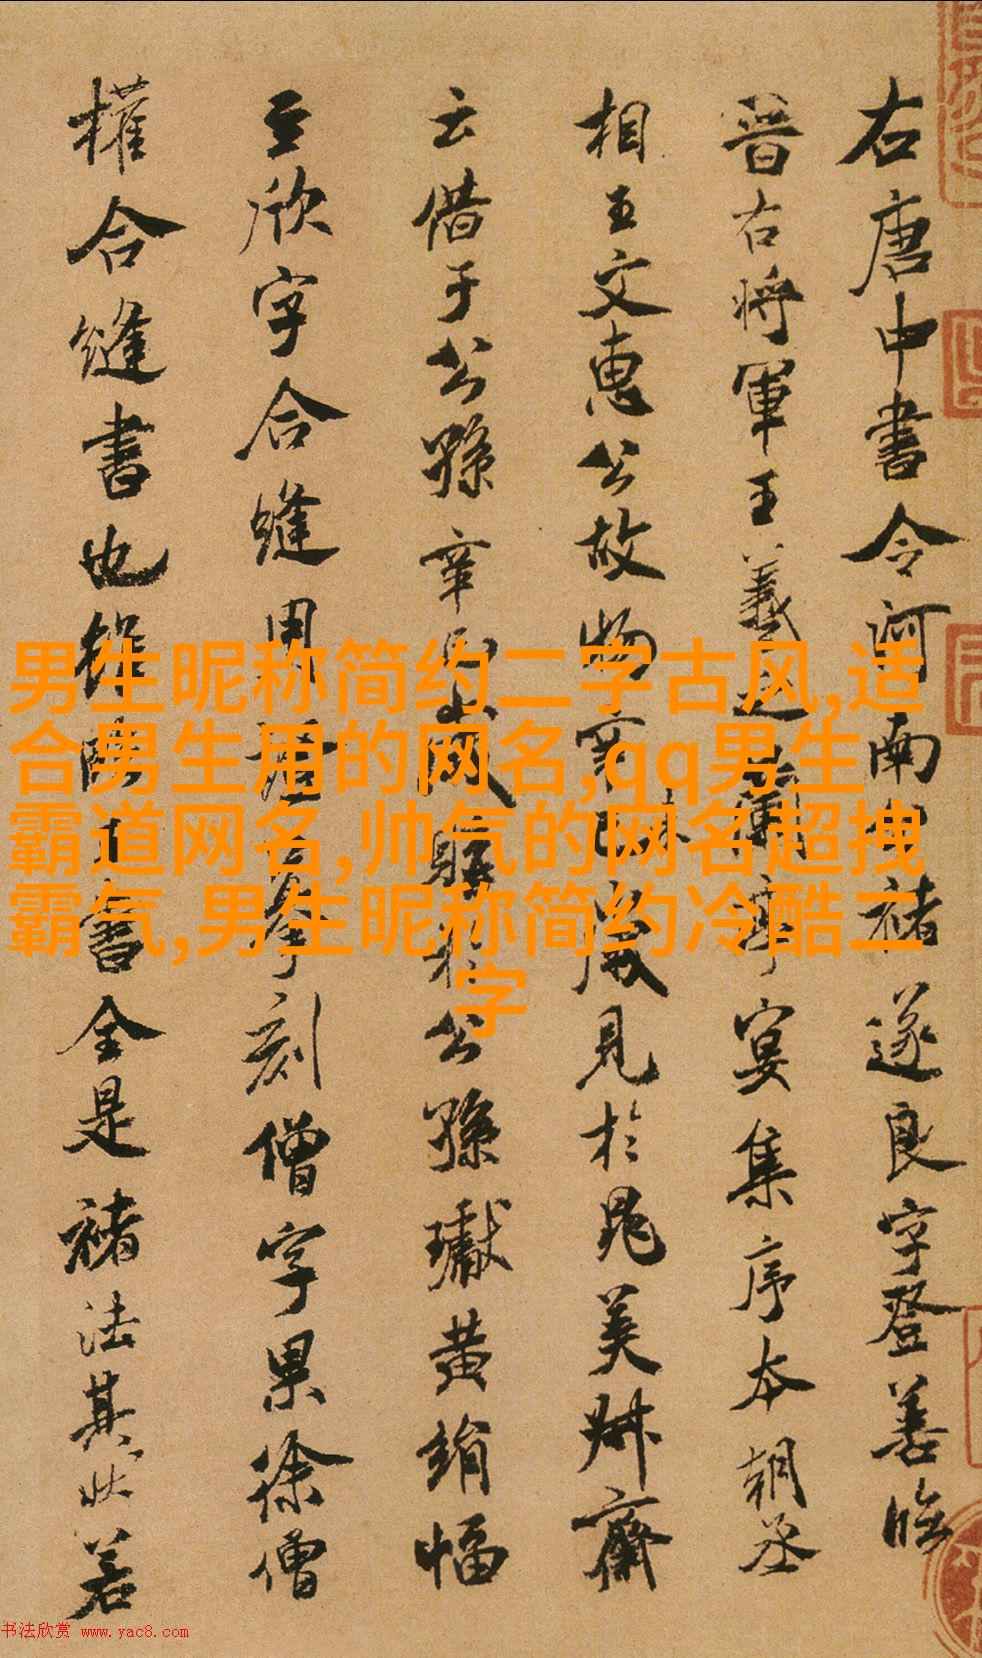 右唐中書令河南公褚遂良字登善臨
晉右將軍王羲之蘭亭宴集序本朝丞
相王文惠公故物辛歲見於晁美叔齋
云借于公孫辛巳歲購於公孫瓛黄絹幅
至欣字合縫用刻僧字果徐僧
權合縫書也雖臨王書全是褚法其狀若
男生昵称简约二字古风,适
合男生用的网名,qq男生
霸道网名,帅气的网名超拽
霸气,男生昵称简约冷酷二
字
书法欣赏 www.yac8.com